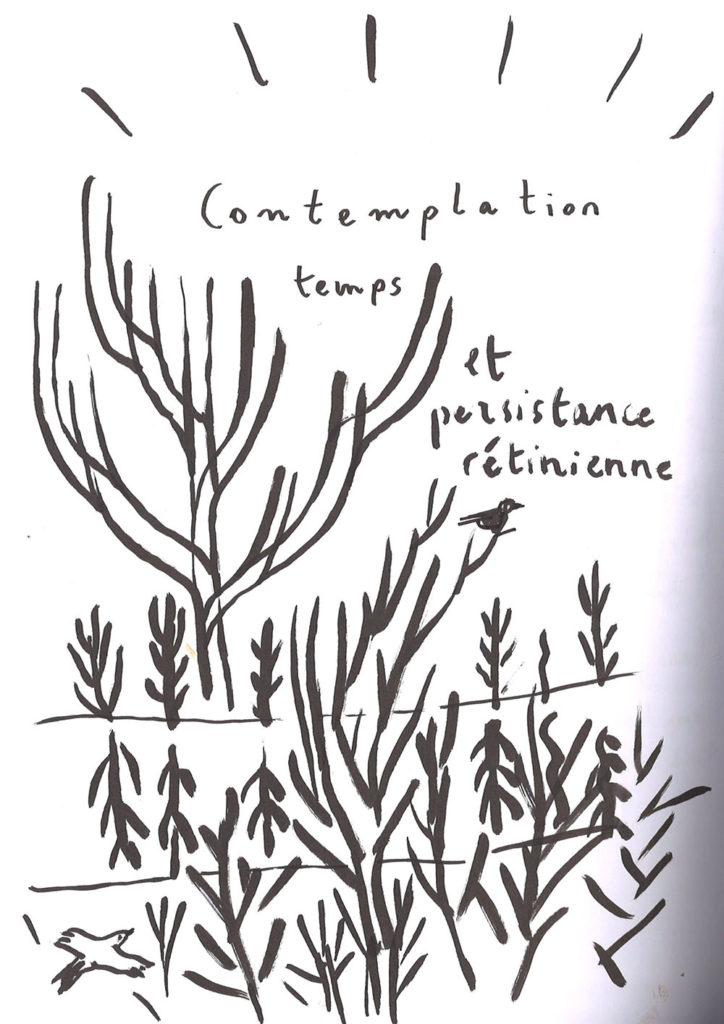 Contemplation
temps
et
persistance
rétinienne